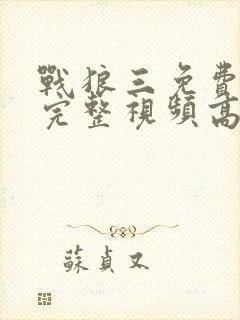 戰狼三免費
完整視頻高
蘇貞又